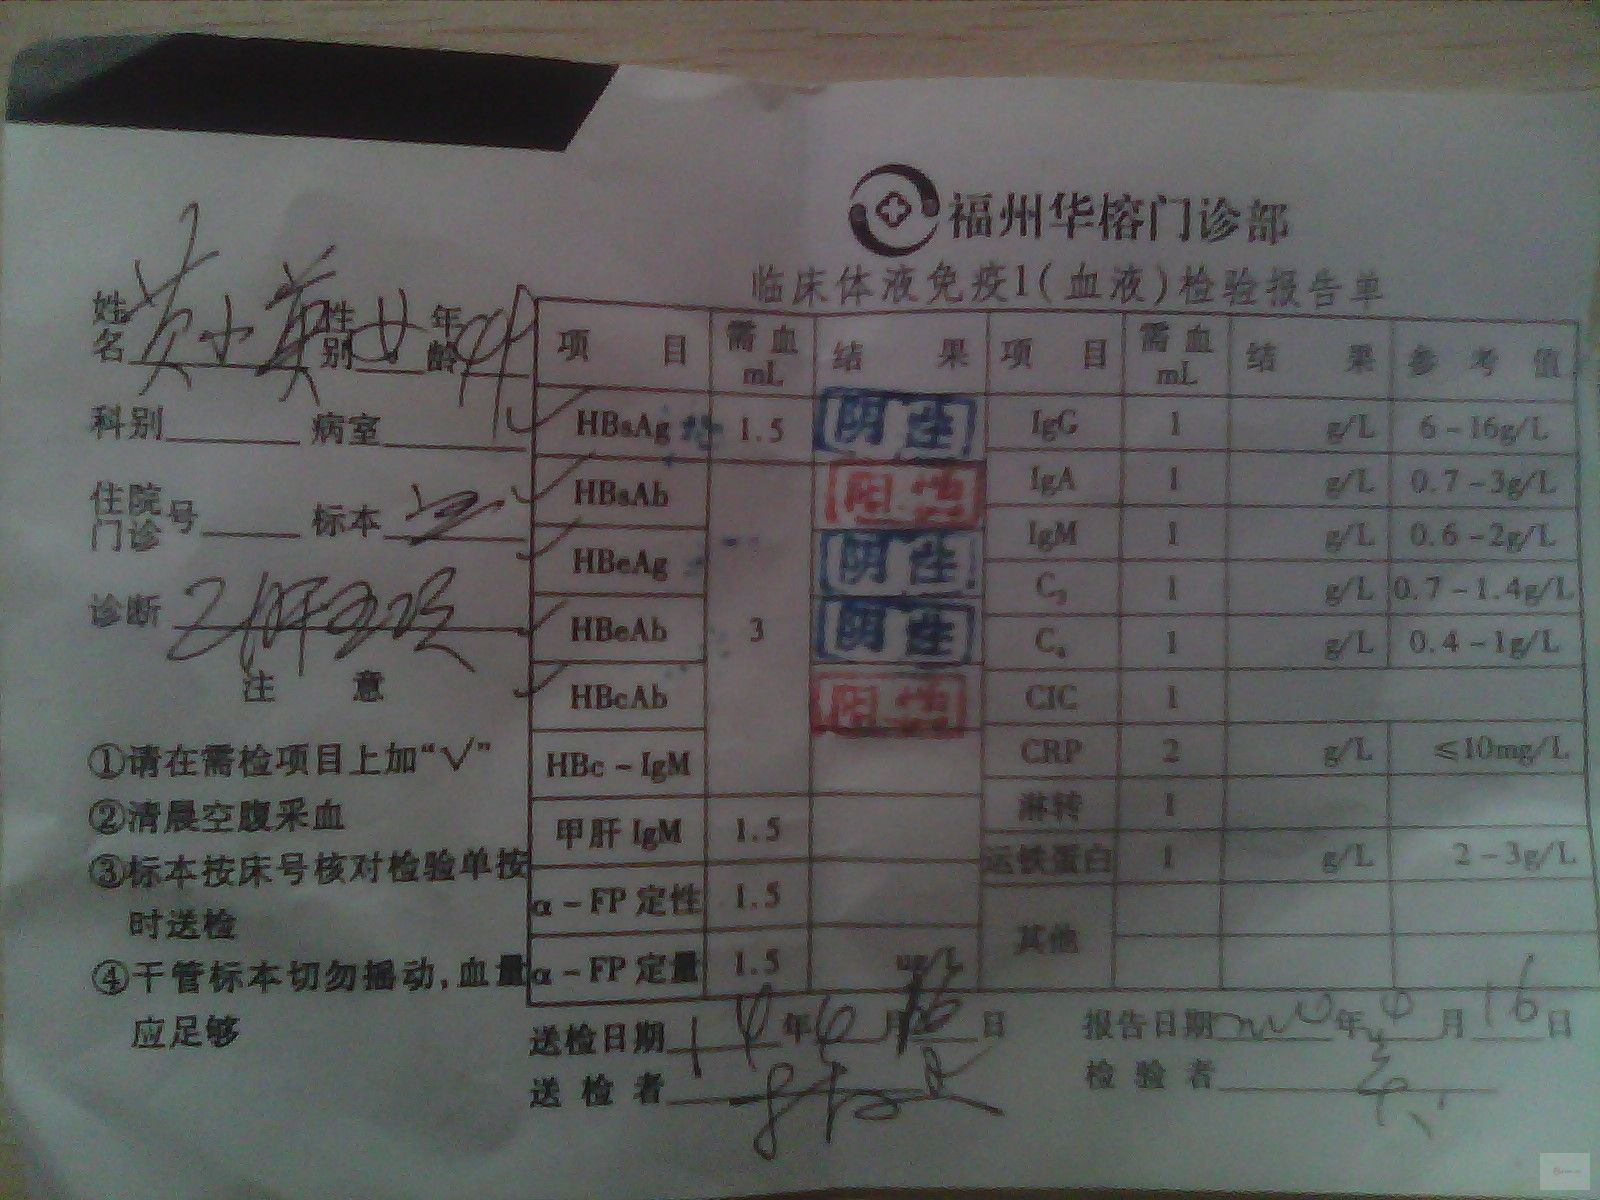 福州华榕门诊部
临床体液免疫1(血液)检验报告单
姓名 黄小英 性别 女 年龄
科别 病室
住院门诊号 标本
诊断 乙肝两对半
注 意
①请在需检项目上加“√”
②清晨空腹采血
③标本按床号核对检验单按
时送检
④干管标本切勿摇动,血量
应足够
项 目 需血mL 结 果 项 目 需血mL 结 果 参 考 值
√ HBsAg 1.5 阴性 IgG 1 g/L 6-16g/L
√ HBsAb 3 阳性 IgA 1 g/L 0.7-3g/L
√ HBeAg 阴性 IgM 1 g/L 0.6-2g/L
√ HBeAb 阴性 C₃ 1 g/L 0.7-1.4g/L
C₄ 1 g/L 0.4-1g/L
√ HBcAb 阳性 CIC 1
HBc-IgM CRP 2 g/L ≤10mg/L
甲肝IgM 1.5 淋转 1
运铁蛋白 1 g/L 2-3g/L
α-FP定性 1.5 其他
α-FP定量 1.5 ug/L
送检日期 14年6月16日 报告日期 年 月16日
送检者 检验者